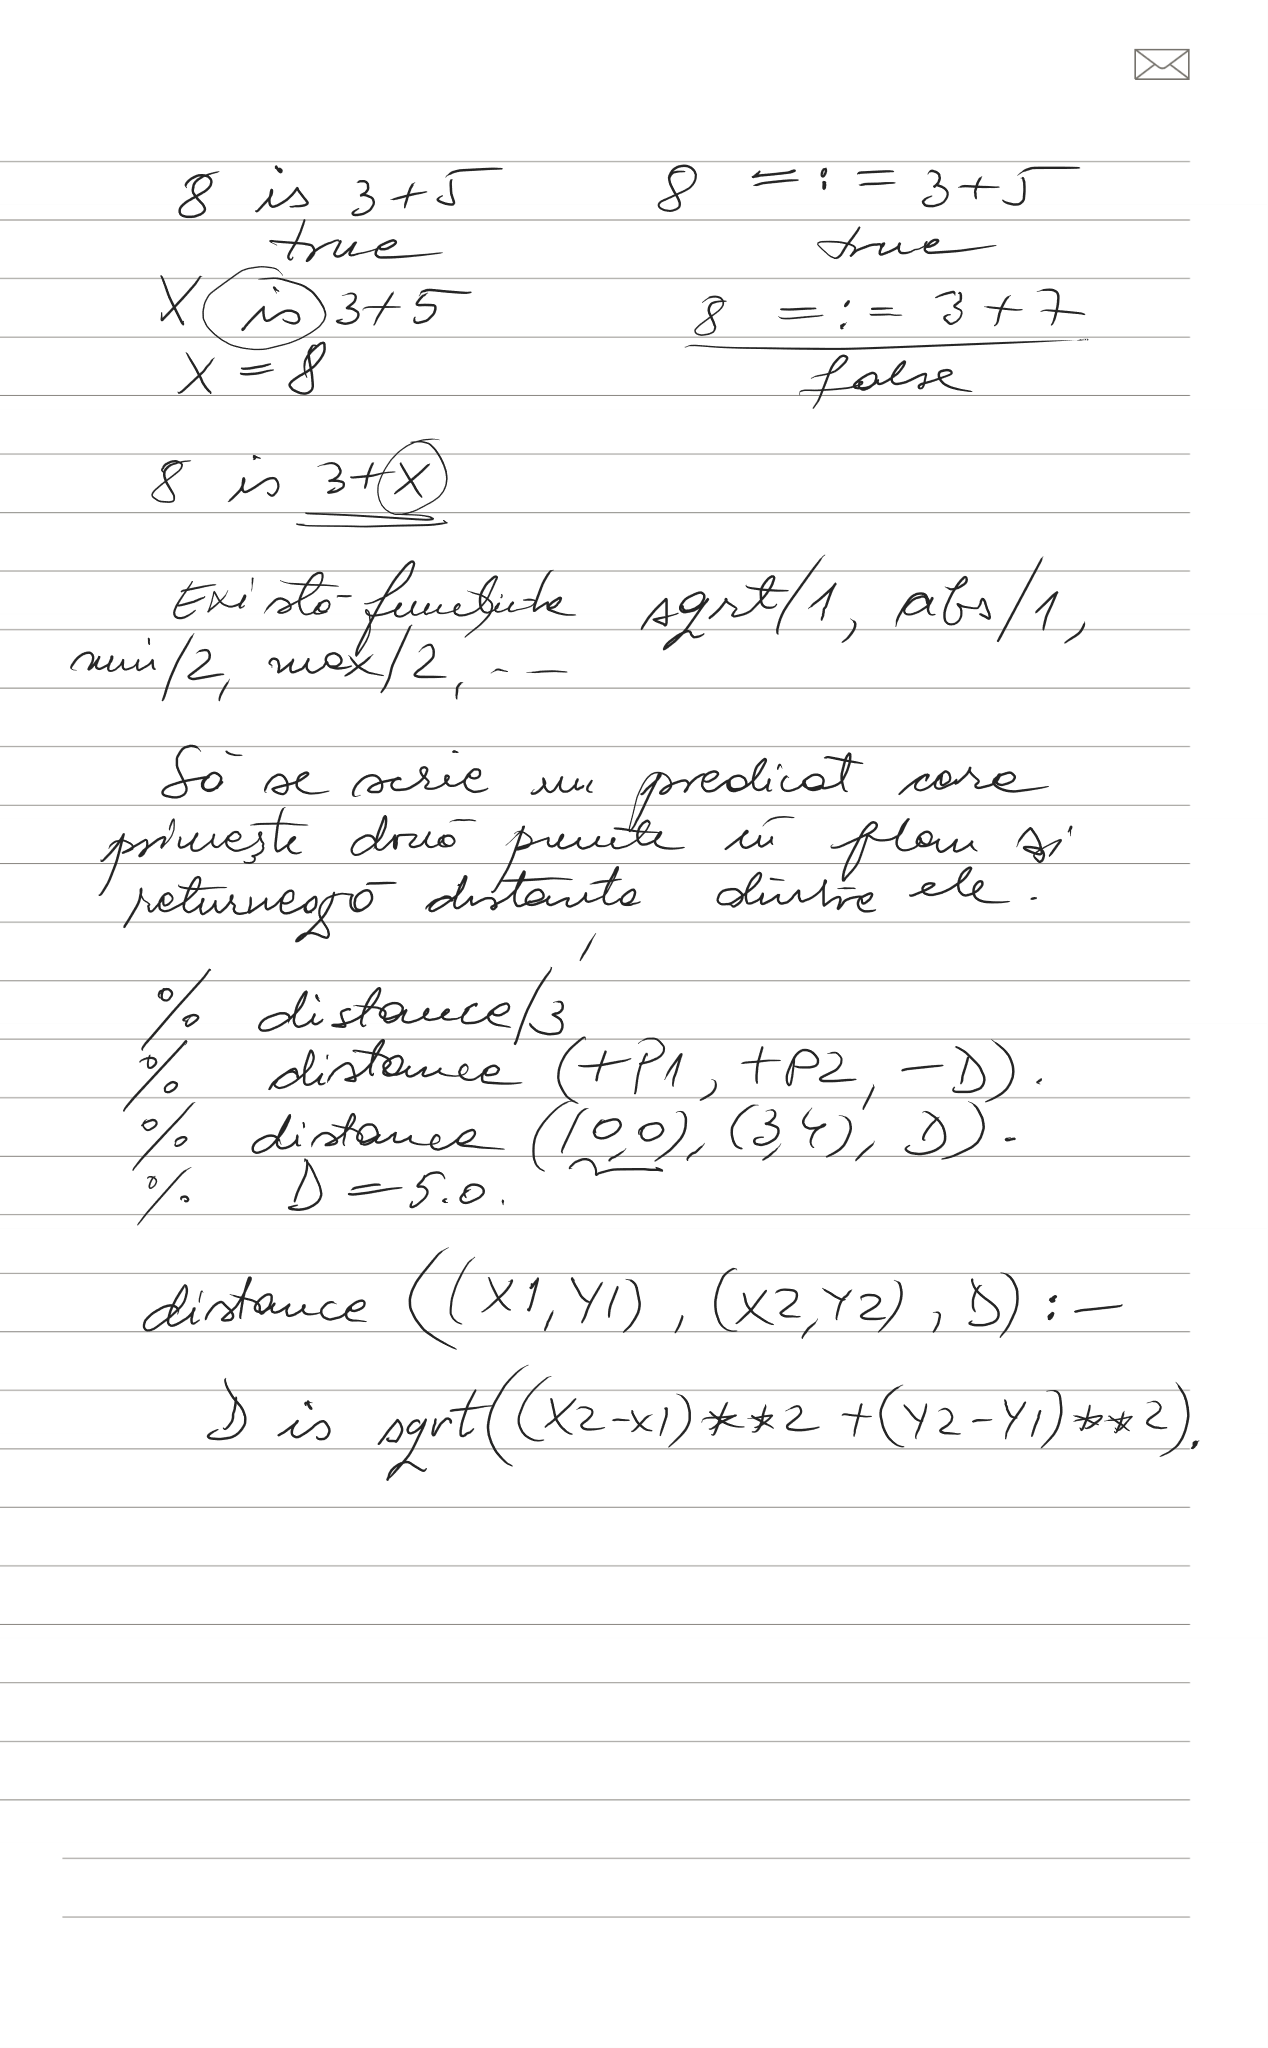 8 is 3+5
8 =:= 3+5
true
true
X is 3+5
8 =:= 3+7
X = 8
false
8 is 3+X
Există funcțiile sqrt/1, abs/1,
min/2, max/2, ...
Să se scrie un predicat care
primește două puncte în plan și
returnează distanța dintre ele.
% distance/3
% distance (+P1, +P2, -D).
% distance ((0,0), (3,4), D).
% D = 5.0.
distance ((X1,Y1), (X2,Y2), D) :-
D is sqrt((X2-X1)**2 + (Y2-Y1)**2).